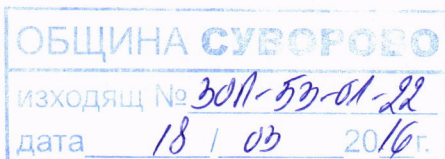 ОБЩИНА СУВОРОВО
ИЗХОДЯЩ № ЗОП-53-01-22
дата 18 / 03 2016 г.